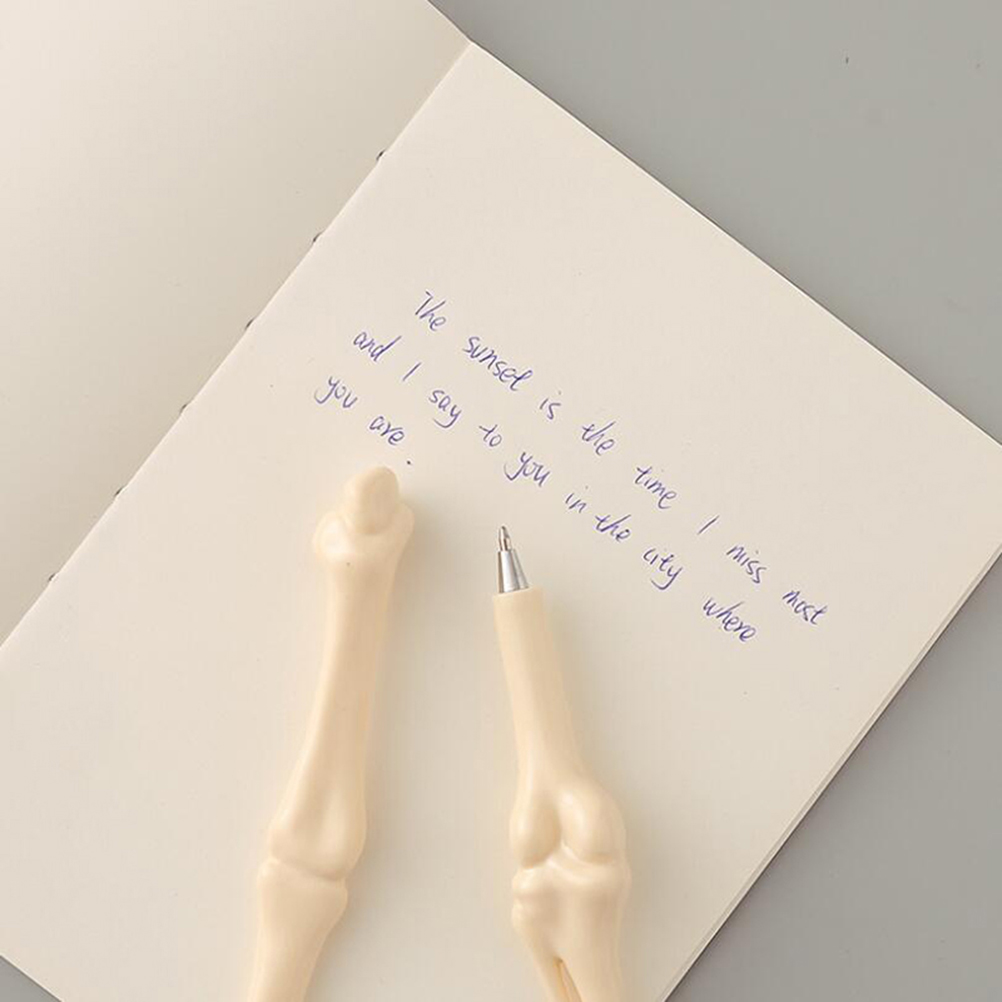 The sunset is the time I miss most
and I say to you in the city where
you are.